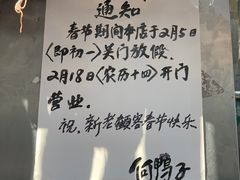 通知
春节期间本店于2月5日
(即初一)关门放假.
2月18日(农历十四)开门
营业.
祝.新老顾客春节快乐
何鸭子